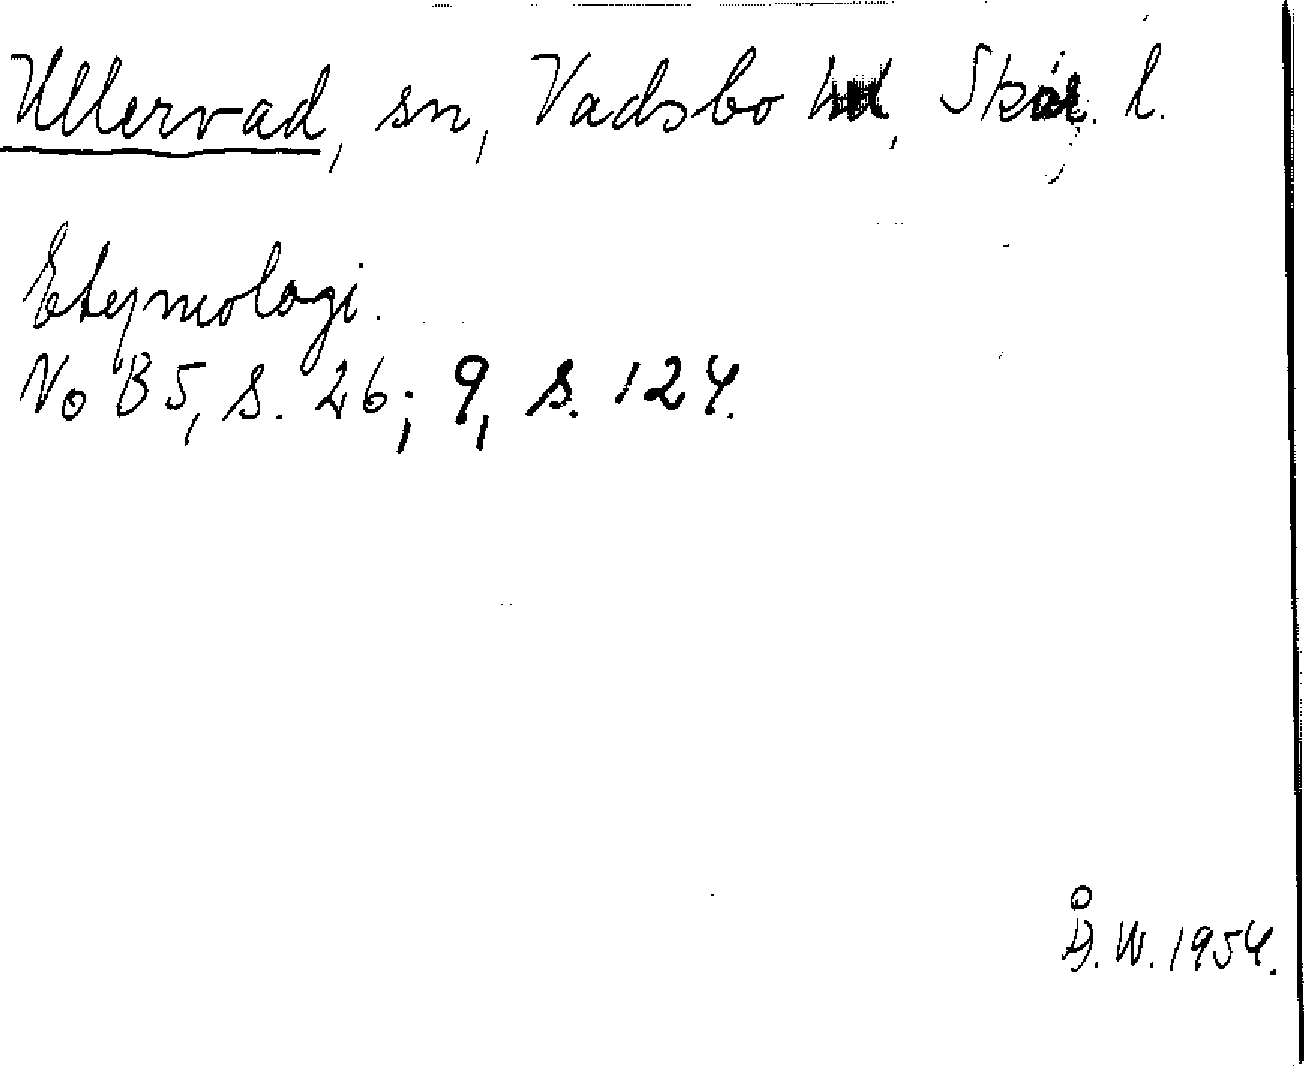 Ullervad, sn, Vadsbo hd, Skar. l.
Etymologi.
NoB 5, s. 26; 9, s. 124.
Å. W. 1954.